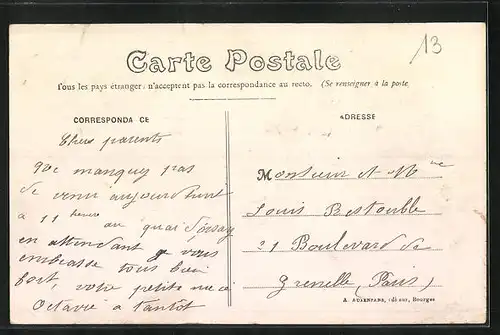 13
Carte Postale
Tous les pays étranger, n'acceptent pas la correspondance au recto. (Se renseigner à la poste
CORRESPONDA CE
ADRESSE
Chers parents
manquez pas
de venir aujourdhui
a 11 heures au quai d'orsay
en attendant je vous
embrasse tous bien
fort, votre petite
Octavie a tantot
Monsieur et Mme
Louis Bestouble
21 Boulevard de
Grenelle, (Paris)
A. AUXENFANS, éditeur, Bourges